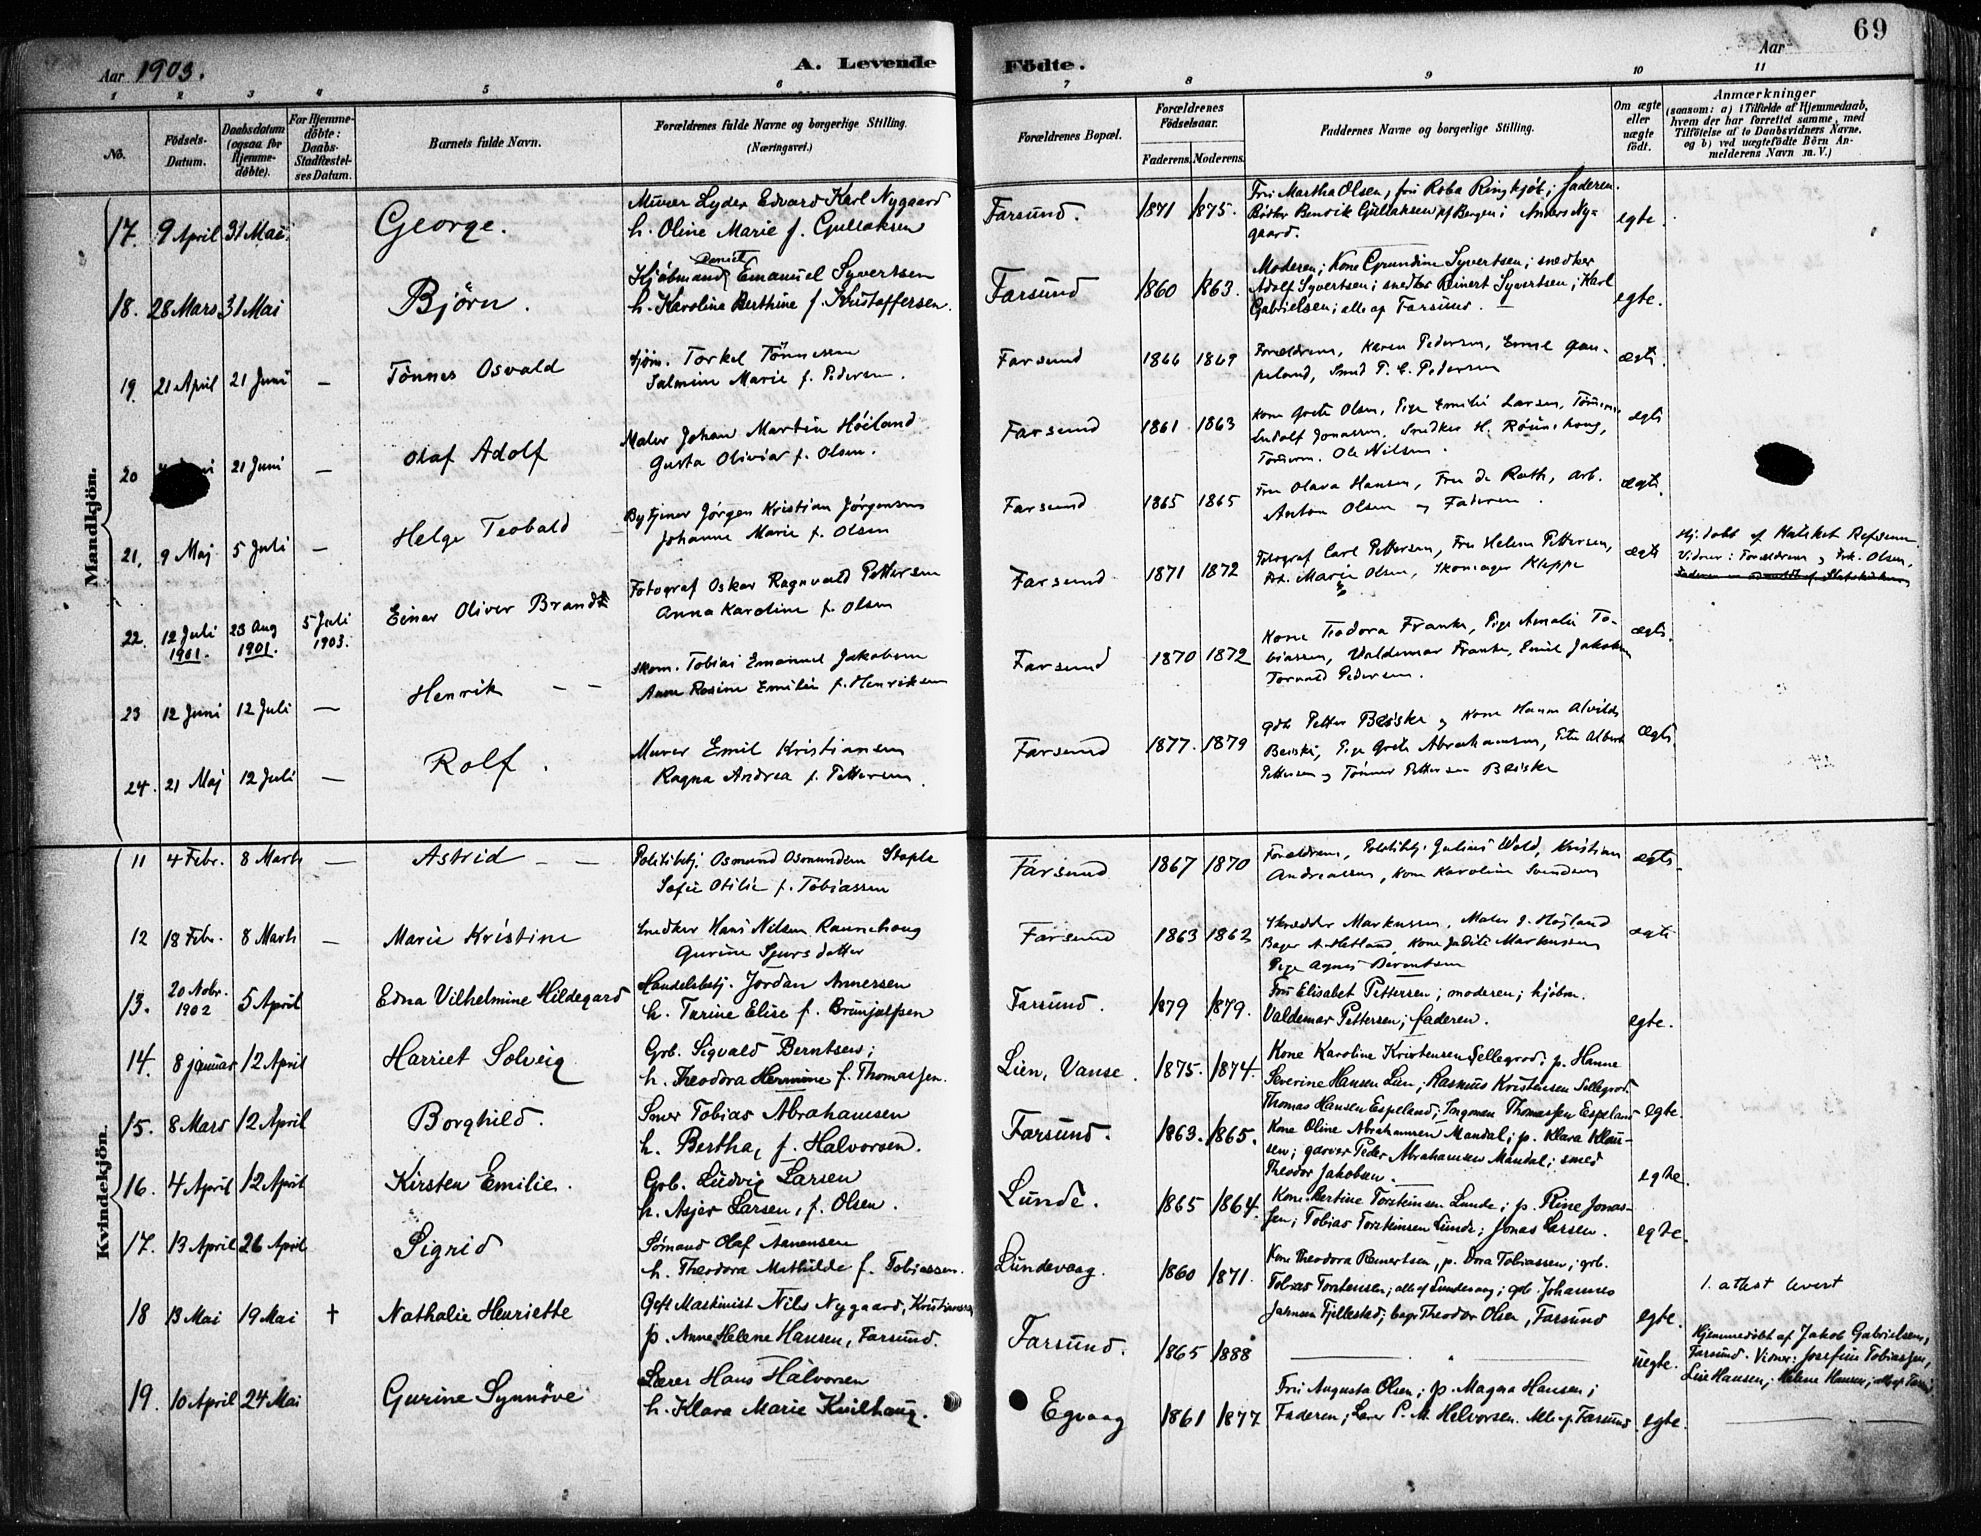 69
Aar 1903.
A. Levende
Födte.
Aar
1 2 3 4 5 6 7 8 9 10 11
No.
Födsels-Datum.
Daabsdatum (ogsaa for Hjemme-döbte).
For Hjemme-döbte: Daabs-Stadfæstel-ses Datum.
Barnets fulde Navn.
Forældrenes fulde Navne og borgerlige Stilling.
(Næringsvei.)
Forældrenes Bopæl.
Forældrenes Födselsaar.
Faderens. Moderens.
Faddernes Navne og borgerlige Stilling.
Om ægte eller uægte födt.
Anmærkninger
(saasom: a) i Tilfælde af Hjemmedaab, hvem der har forrettet samme, med Tilföielse af to Daabsvidners Navne, og b) ved uægtefödte Börn An-melderens Navn m. V.)
Mandkjön.
17. 9 April 31 Mai. George. Murer Lyder Edvard Karl Nygaard
h. Oline Marie f. Gullaksen
Farsund. 1871 1875. Fru Martha Olsen, fru Roba Ringkjöb; faderen.
Bödker Benvik Gullaksen af Bergen; Anders Ny-
gaard.
egte.
18. 28 Mars 31 Mai Björn. Kjöbmand Daniel Emanuel Syvertsen
h. Karoline Berthine f. Kristoffersen.
Farsund 1860 1863. Moderen; Kone Grundine Syvertsen; snedker
Adolf Syvertsen; snedker Reinert Syvertsen; Karl
Gabrielsen; alle af Farsund. —
egte.
19. 21 April 21 Juni — Tönnes Osvald Sjöm. Torkel Tönnessen
Salmine Marie f. Pedersen.
Farsund 1866 1869 Forældrene, Karen Pedersen, Emil
Smed P. C. Pedersen
ægte.
20 21 Juni — Olaf Adolf Maler Johan Martin Höiland
Gusta Olivia f. Olsen.
Farsund 1861 1863 Kone Grete Olsen, Pige Emilie Larsen,
Jonassen, Snedker H. Rönnehoug,
Tömm. Ole Nilsen.
ægte
21. 9 Maj 5 Juli — Helge Teobald Bytjener Jörgen Kristian Jörgensen
Johanne Marie f. Olsen
Farsund 1865 1865 Fru Olava Hansen, Fru de Rath, Arb.
Anton Olsen og Faderen.
ægte.
22. 12 Juli 1901. 23 Aug 1901. 5 Juli 1903. Einar Oliver Brandt Fotograf Oskar Ragnvald Pettersen
Anna Karoline f. Olsen
Farsund 1871 1872 Fotograf Carl Pettersen, Fru Helene Pettersen,
Frk. Marie Olsen, Skomager Kleppe
ægte
Hj.döbt af Refsum.
Vidner: Forældrene og Frk. Olsen,
23 12 Juni 12 Juli — Henrik — — Skom. Tobias Emanuel Jakobsen
Anne Rosine Emilie f. Henriksen
Farsund 1870 1872 Kone Teodora Franke, Pige Amalie To-
biassen, Valdemar Franke, Emil Jakobsen
Torvald Pedersen.
ægte
24. 21 Maj 12 Juli — Rolf. Murer Emil Kristiansen
Ragna Andrea f. Pettersen.
Farsund 1877. 1879 Petter Beiske og Kone Hanna Alvilde
Beiske, Pige Grete Abrahamsen, Albert
Pettersen og Tönnes Pettersen Beiske
ægte
Kvindekjön.
11 4 Febr. 8 Marts — Astrid — — Politibetj. Osmund Osmundsen Stople
Sofie Otilie f. Tobiassen
Farsund 1867 1870 Forældrene, Politibtj. Julius Wold, Kristian
Andreassen, Kone Karoline Svendsen
ægte
12 18 Febr. 8 Marts — Marie Kristine Snedker Hans Nilsen Rannehoug
Gurine Sjursdatter
Farsund 1863 1862 Skrædder Markussen, Maler J. Höjland
Bager A. Hetland Kone Judite Markussen
Pige Agnes Berentsen
ægte
13. 20 Nobr. 1902 5 April Edna Vilhelmine Hildegard Handelsbetj. Jördan Annersen
h. Tarine Elise f. Brunjulfsen
Farsund. 1879 1879. Fru Elisabet Pettersen; moderen; kjöbm.
Valdemar Pettersen; faderen.
egte.
14. 8 januar 12 April Harriet Solveig Grb. Sigvald Berntsen;
h. Theodora Hermine f. Thomassen.
Lien, Vanse. 1875. 1874. Kone Karoline Kristensen Sellegrod; p. Hanne
Severine Hansen Lien; Rasmus Kristensen Sellegrod.
Thomas Hansen Espeland; Torgonen Thomassen Espeland
egte.
15. 8 Mars 12 April Borghild. Smed Tobias Abrahamsen
h. Bertha, f. Halvorsen.
Farsund. 1863. 1865. Kone Oline Abrahamsen Mandal; p. Klara Klau-
sen; garver Peder Abrahamsen Mandal; smed
Theodor Jakobsen.
egte.
16. 4 April 12 April Kirsten Emilie. Grb. Ludvig Larsen
h. Asjer Larsen, f. Olsen.
Lunde. 1865 1864. Kone Bertine Torstensen Lunde; p. Rine Jonas-
sen; Tobias Torstensen Lunde; Jonas Larsen.
egte.
17. 13 April 26 April Sigrid Sömand Olaf Aanensen
h. Theodora Mathilde f. Tobiassen.
Lundevaag. 1860 1871. Kone Theodora Reinertsen, p. Dora Tobiassen; grb.
Tobias Torstensen; alle af Lundevaag; grb. Johannes
Jahnsen Fjellestad; bager Theodor Olsen, Farsund
egte.
1. attst levert
18 13 Mai 19 Mai † Nathalie Henriette Gift Maskinist Nils Nygaard, Kristianssand,
p. Anne Helene Hansen, Farsund.
Farsund. 1865 1888 uegte.
Hjemmedöbt af Jakob Gabrielsen,
Farsund. Vidner: Josefine Tobiassen,
Lise Hansen, Helene Hansen; alle af Farsund.
19. 10 April 24 Mai Gurine Synnöve Lærer Hans Halvorsen
h. Klara Marie Kvilhaug.
Egvaag 1861 1877 Fru Augusta Olsen; p. Magna Hansen;
Faderen; Lærer P. M. Helvorsen. Alle af Farsund.
egte.